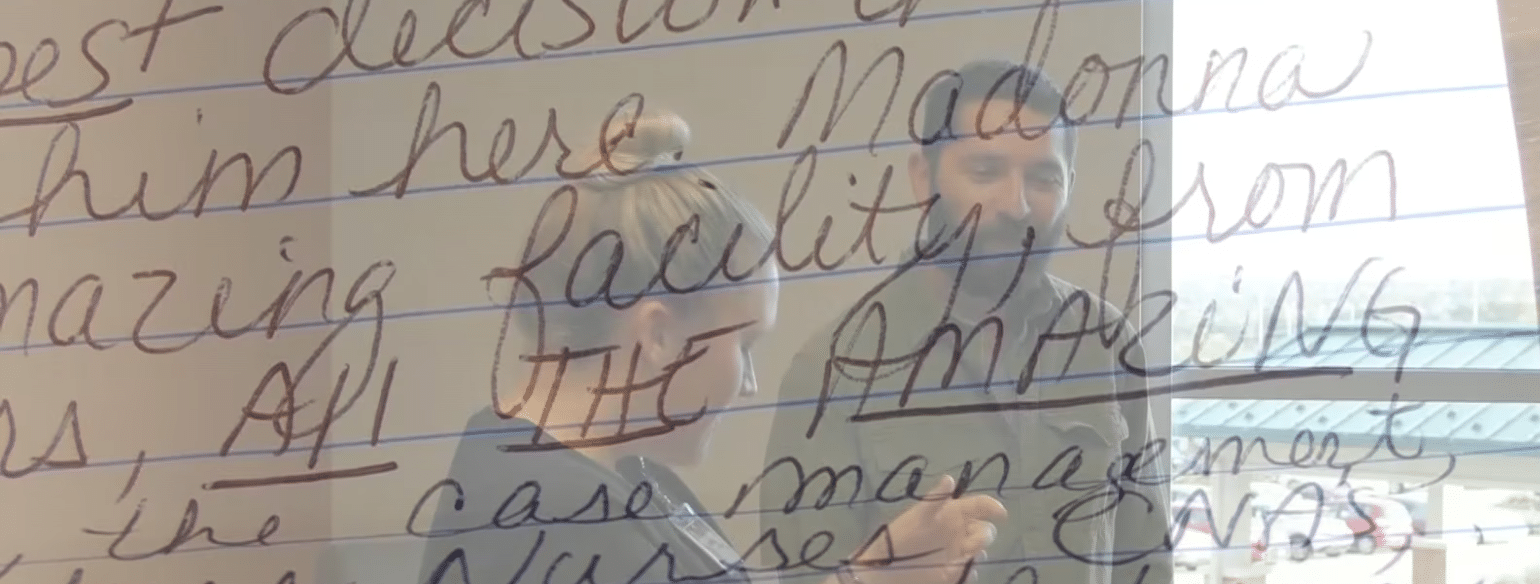 best decision
him here. Madonna
mazing facility, from
rs, All THE AMAZiNG
the case management,
Nurses CNAS,